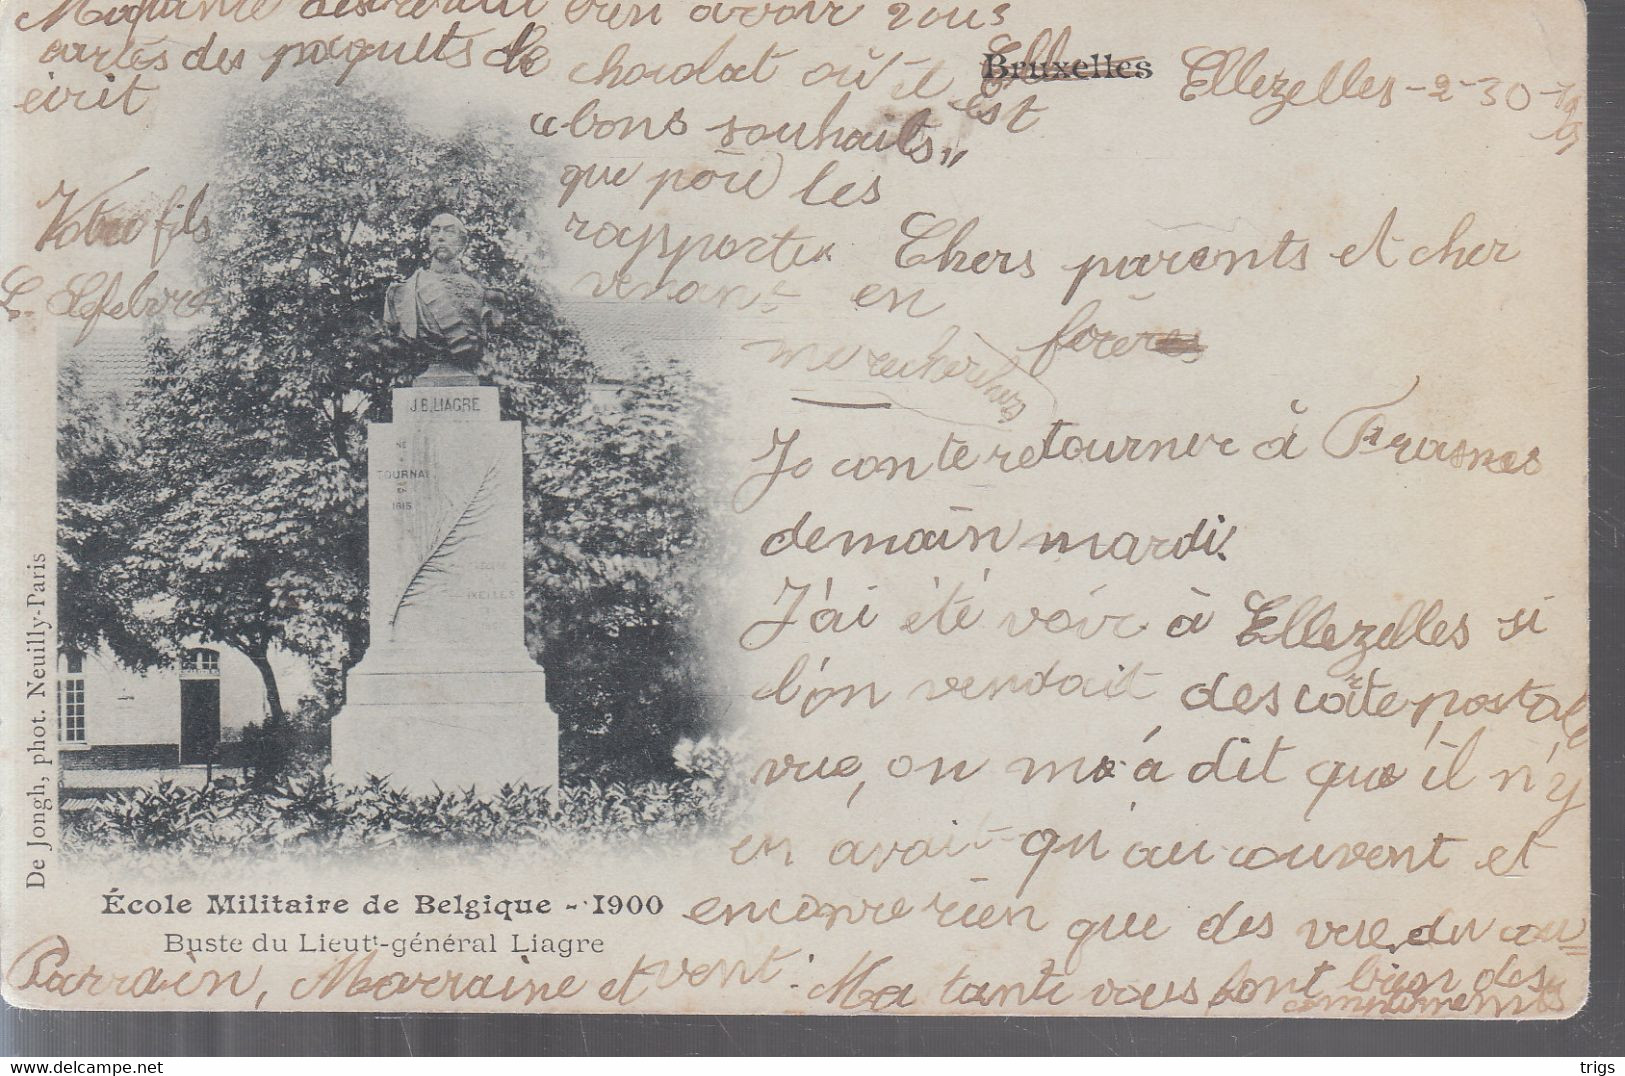 Bruxelles Ellezelles - 2 - 30
Chers parents et cher
frère
Je conte retourner à Frasnes
demain mardi.
J'ai été voir à Ellezelles si
l'on vendait des carte postale
vue, on m'a dit que il n'y
en avait qu'au couvent et
encorre rien que des vue du cou=
vent. Ma tante vous font bien des
compliments
Parrain, Marraine et
désirerait bien avoir vous
cartes des paquets de
chocolat où il est
écrit
"bons souhaits"
que père les
rapporte
venant en
me rechercher
Votre fils
L. Lefebvre
J.B. LIAGRE
NE
A
TOURNAI
1815
IXELLES
De Jongh, phot. Neuilly-Paris
École Militaire de Belgique - 1900
Buste du Lieutt-général Liagre
www.delcampe.net
trigs